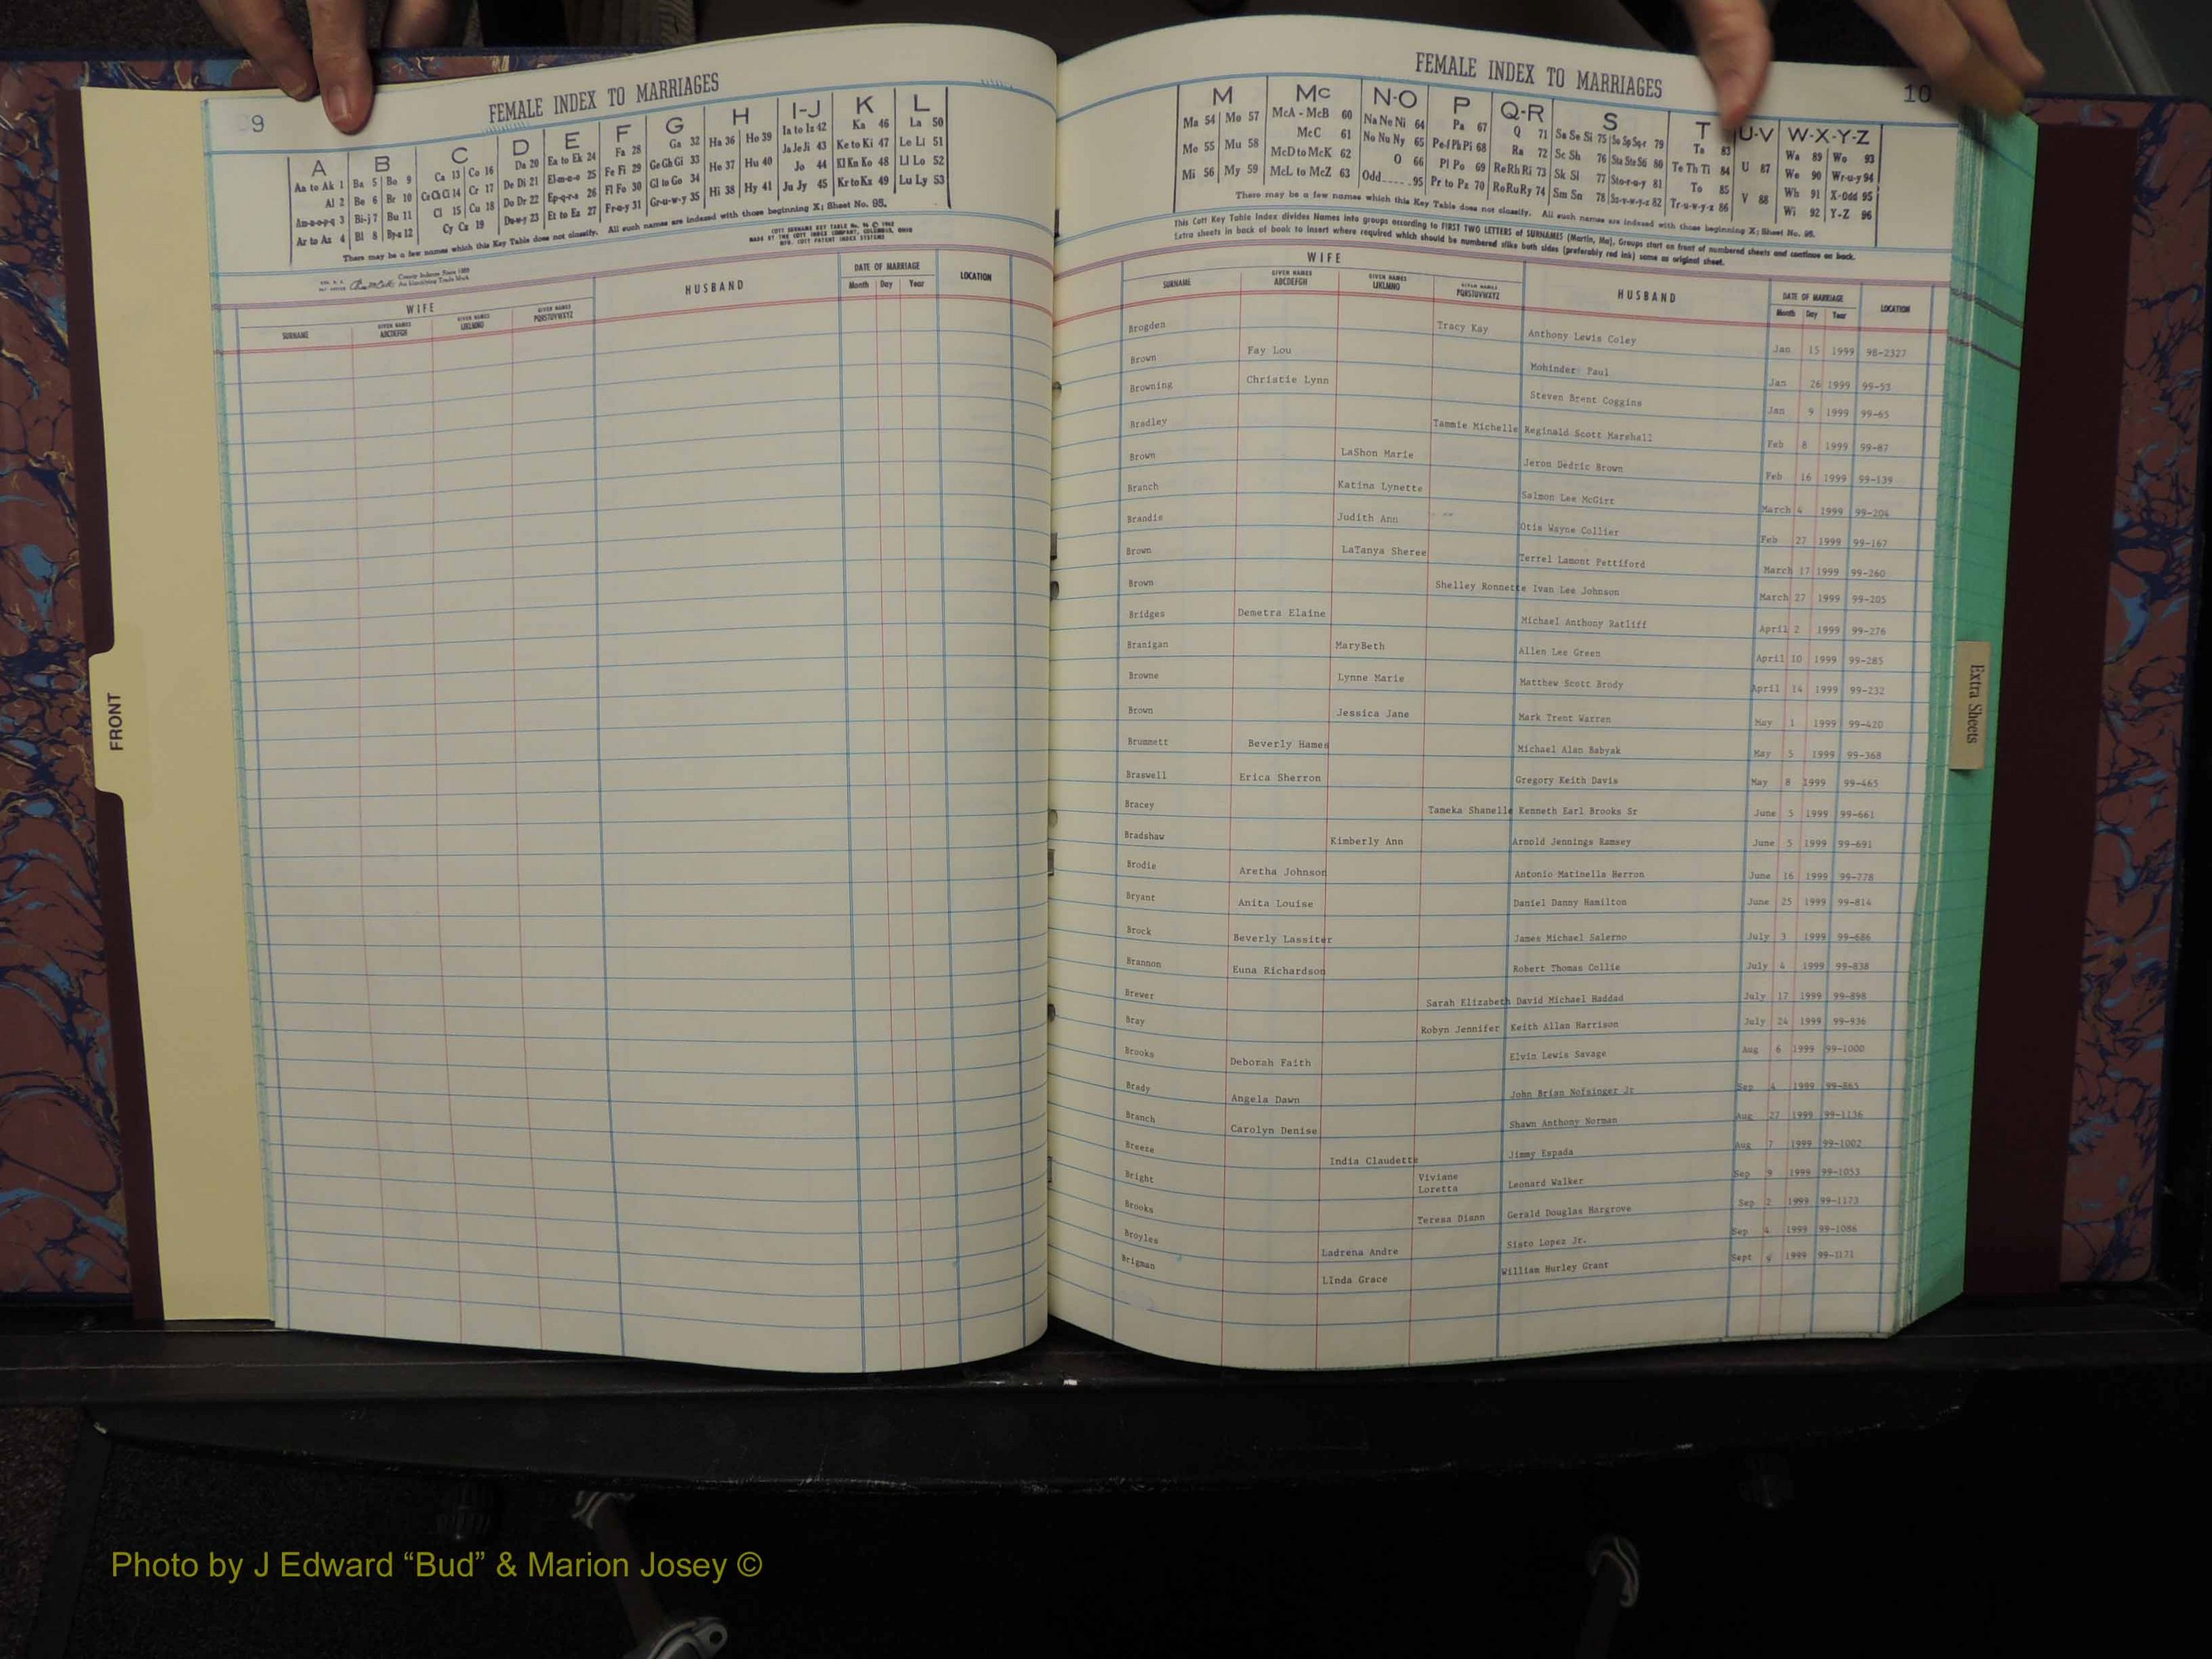 9
FEMALE INDEX TO MARRIAGES
A B C D E F G H I-J K L
Aa to Ak 1 Ba 5 Bo 9 Ca 13 Co 16 Da 20 Ea to Ek 24 Fa 28 Ga 32 Ha 36 Ho 39 Ia to Iz 42 Ka 46 La 50
Al 2 Be 6 Br 10 Ce Ch Ci 14 Cr 17 De Di 21 El-m-n-o 25 Fe Fi 29 Ge Gh Gi 33 He 37 Hu 40 Ja Je Ji 43 Ke to Ki 47 Le Li 51
Am-n-o-p-q 3 Bi-j 7 Bu 11 Cl 15 Cu 18 Do Dr 22 Ep-q-r-s 26 Fl Fo 30 Gl to Go 34 Hi 38 Hy 41 Jo 44 Kl Kn Ko 48 Ll Lo 52
Ar to Az 4 Bl 8 By-z 12 Cy Cz 19 Du-w-y 23 Et to Ez 27 Fr-u-y 31 Gr-u-w-y 35 Ju Jy 45 Kr to Kz 49 Lu Ly 53
There may be a few names which this Key Table does not classify. All such names are indexed with those beginning X; Sheet No. 95.
WIFE HUSBAND DATE OF MARRIAGE LOCATION
Month Day Year
SURNAME GIVEN NAMES ABCDEFGH GIVEN NAMES IJKLMNO GIVEN NAMES PQRSTUVWXYZ
FRONT
10
FEMALE INDEX TO MARRIAGES
M Mc N-O P Q-R S T U-V W-X-Y-Z
Ma 54 Mo 57 McA - McB 60 Na Ne Ni 64 Pa 67 Q 71 Sa Se Si 75 So Sp Sq-r 79 Ta 83 U 87 Wa 89 Wo 93
Me 55 Mu 58 McC 61 No Nu Ny 65 Pe-f Ph Pi 68 Ra 72 Sc Sh 76 Sta Ste Sti 80 Te Th Ti 84 We 90 Wr-u-y 94
Mi 56 My 59 McD to McK 62 O 66 Pl Po 69 Re Rh Ri 73 Sk Sl 77 Sto-r-u-y 81 To 85 V 88 Wh 91 X-Odd 95
McL to McZ 63 Odd 95 Pr to Pz 70 Ro Ru Ry 74 Sm Sn 78 Su-v-w-y-z 82 Tr-u-w-y-z 86 Wi 92 Y-Z 96
There may be a few names which this Key Table does not classify. All such names are indexed with those beginning X; Sheet No. 95.
This Cott Key Table Index divides Names into groups according to FIRST TWO LETTERS of SURNAMES (Martin, Ma), Groups start on front of numbered sheets and continue on back.
Extra sheets in back of book to insert where required which should be numbered alike both sides (preferably red ink) same as original sheet.
WIFE HUSBAND DATE OF MARRIAGE LOCATION
SURNAME GIVEN NAMES ABCDEFGH GIVEN NAMES IJKLMNO GIVEN NAMES PQRSTUVWXYZ Month Day Year
Brogden Tracy Kay Anthony Lewis Coley Jan 15 1999 98-2327
Brown Fay Lou Mohinder Paul Jan 26 1999 99-53
Browning Christie Lynn Steven Brent Coggins Jan 9 1999 99-65
Bradley Tammie Michelle Reginald Scott Marshall Feb 8 1999 99-87
Brown LaShon Marie Jeron Dedric Brown Feb 16 1999 99-139
Branch Katina Lynette Salmon Lee McGirt March 4 1999 99-204
Brandis Judith Ann Otis Wayne Collier Feb 27 1999 99-167
Brown LaTanya Sheree Terrel Lamont Pettiford March 17 1999 99-260
Brown Shelley Ronnette Ivan Lee Johnson March 27 1999 99-205
Bridges Demetra Elaine Michael Anthony Ratliff April 2 1999 99-276
Branigan MaryBeth Allen Lee Green April 10 1999 99-285
Browne Lynne Marie Matthew Scott Brody April 14 1999 99-232
Brown Jessica Jane Mark Trent Warren May 1 1999 99-420
Brummett Beverly Hames Michael Alan Babyak May 5 1999 99-368
Braswell Erica Sherron Gregory Keith Davis May 8 1999 99-465
Bracey Tameka Shanelle Kenneth Earl Brooks Sr June 5 1999 99-661
Bradshaw Kimberly Ann Arnold Jennings Ramsey June 5 1999 99-691
Brodie Aretha Johnson Antonio Matinells Herron June 16 1999 99-778
Bryant Anita Louise Daniel Danny Hamilton June 25 1999 99-814
Brock Beverly Lassiter James Michael Salerno July 3 1999 99-686
Brannon Euna Richardson Robert Thomas Collie July 4 1999 99-838
Brewer Sarah Elizabeth David Michael Haddad July 17 1999 99-898
Bray Robyn Jennifer Keith Allan Harrison July 24 1999 99-936
Brooks Deborah Faith Elvin Lewis Savage Aug 6 1999 99-1000
Brady Angela Dawn John Brian Nofsinger Jr Sep 4 1999 99-865
Branch Carolyn Denise Shawn Anthony Norman Aug 27 1999 99-1136
Breeze India Claudette Jimmy Espada Aug 7 1999 99-1002
Bright Viviane Loretta Leonard Walker Sep 9 1999 99-1053
Brooks Teresa Diann Gerald Douglas Hargrove Sep 2 1999 99-1173
Broyles Ladrena Andre Sisto Lopez Jr. Sep 4 1999 99-1086
Brigman Linda Grace William Hurley Grant Sept 4 1999 99-1171
Extra Sheets
Photo by J Edward “Bud” & Marion Josey ©